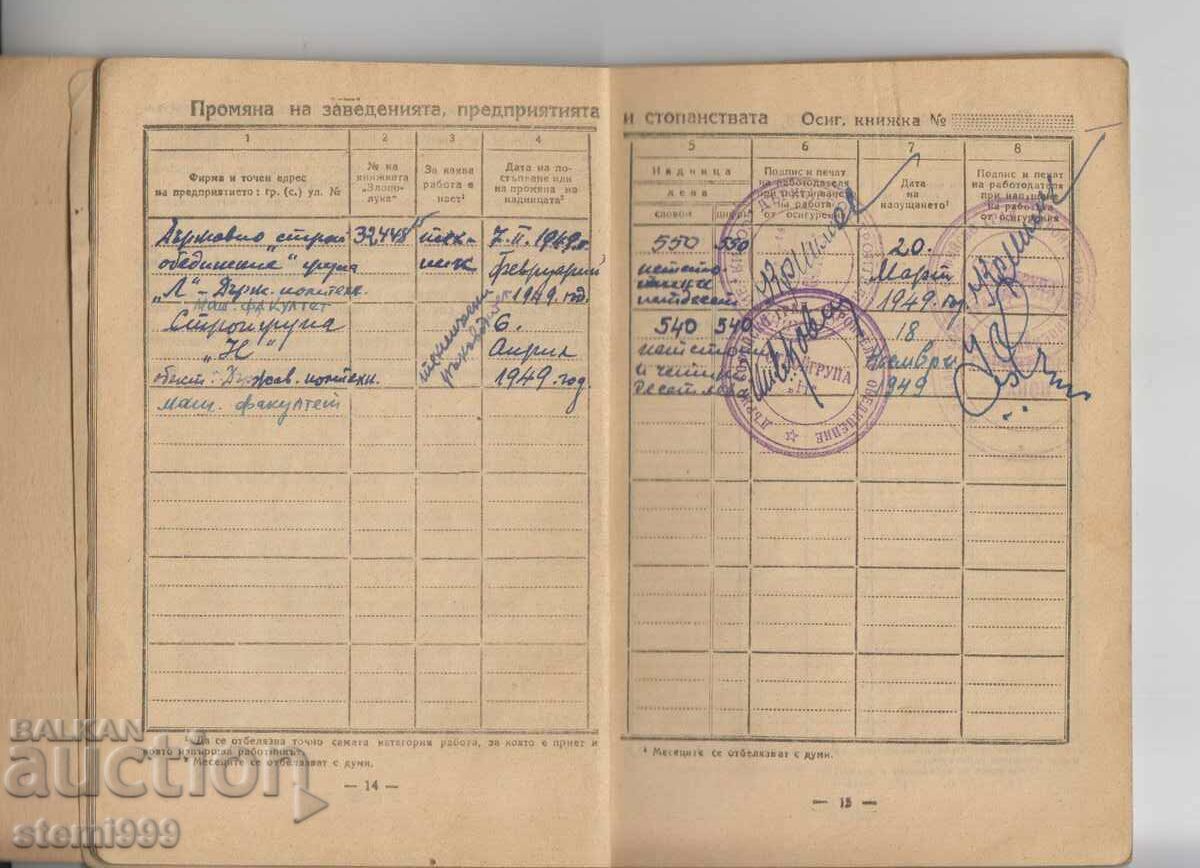 Промяна на заведенията, предприятията и стопанствата Осиг. книжка №
1 2 3 4 5 6 7 8
Фирма и точен адрес
на предприятието: гр. (с.) ул. №
№ на
книжката
"Злопо-
лука"
За каква
работа е
нает¹
Дата на по-
стъпване или
на промяна на
надницата²
Надница
лева
словом цифри
Подпис и печат
на работодателя
при постъпване
на работа
от осигурен.
Дата
на
напущането¹
Подпис и печат
на работодателя
при напущане
на работа
от осигурения
Държавно "строй 32,448 тех- 7. II. 1949 г. 550 550 20.
обединение" група ник Февруарий петсто- Март
"Л" - Държ. политехн. 1949 год. тини 1949 год.
Маш. факултет петдесет
Стройгрупа технически 6. 540 540 18
"Н" ръководител Април петстотин Ноември
обект: Държав. политехн. 1949 год и четири- 1949
маш. факултет десет лева
ГРУПА
"Н"
ОБЕДИНЕНИЕ
¹ Да се отбелязва точно самата категория работа, за която е приет и
която извършва работникът.
² Месеците се отбелязват с думи.
— 14 —
¹ Месеците се отбелязват с думи.
— 15 —
BALKAN
auction
stemi999